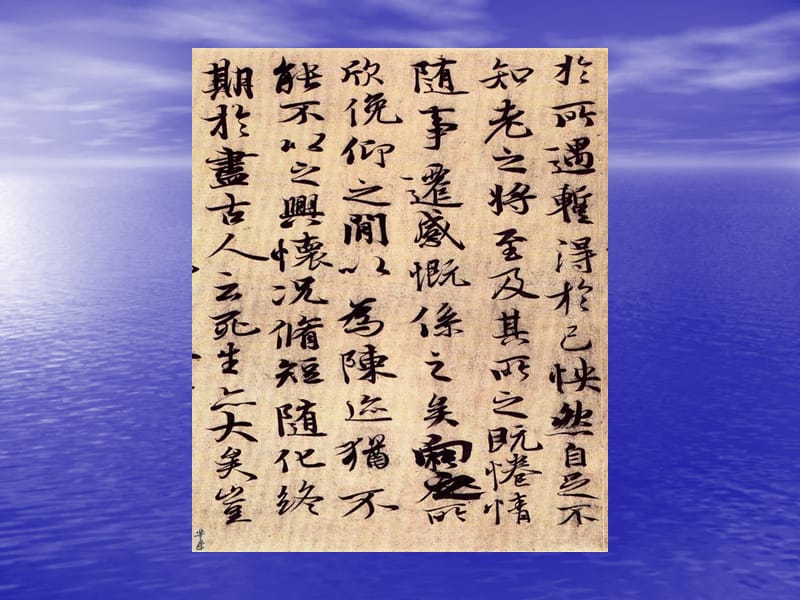 於所遇暫得於己怏然自足不
知老之將至及其所之既惓情
随事遷感慨係之矣向之所
欣俛仰之閒以為陳迹猶不
能不以之興懷况脩短随化終
期於盡古人云死生亦大矣豈